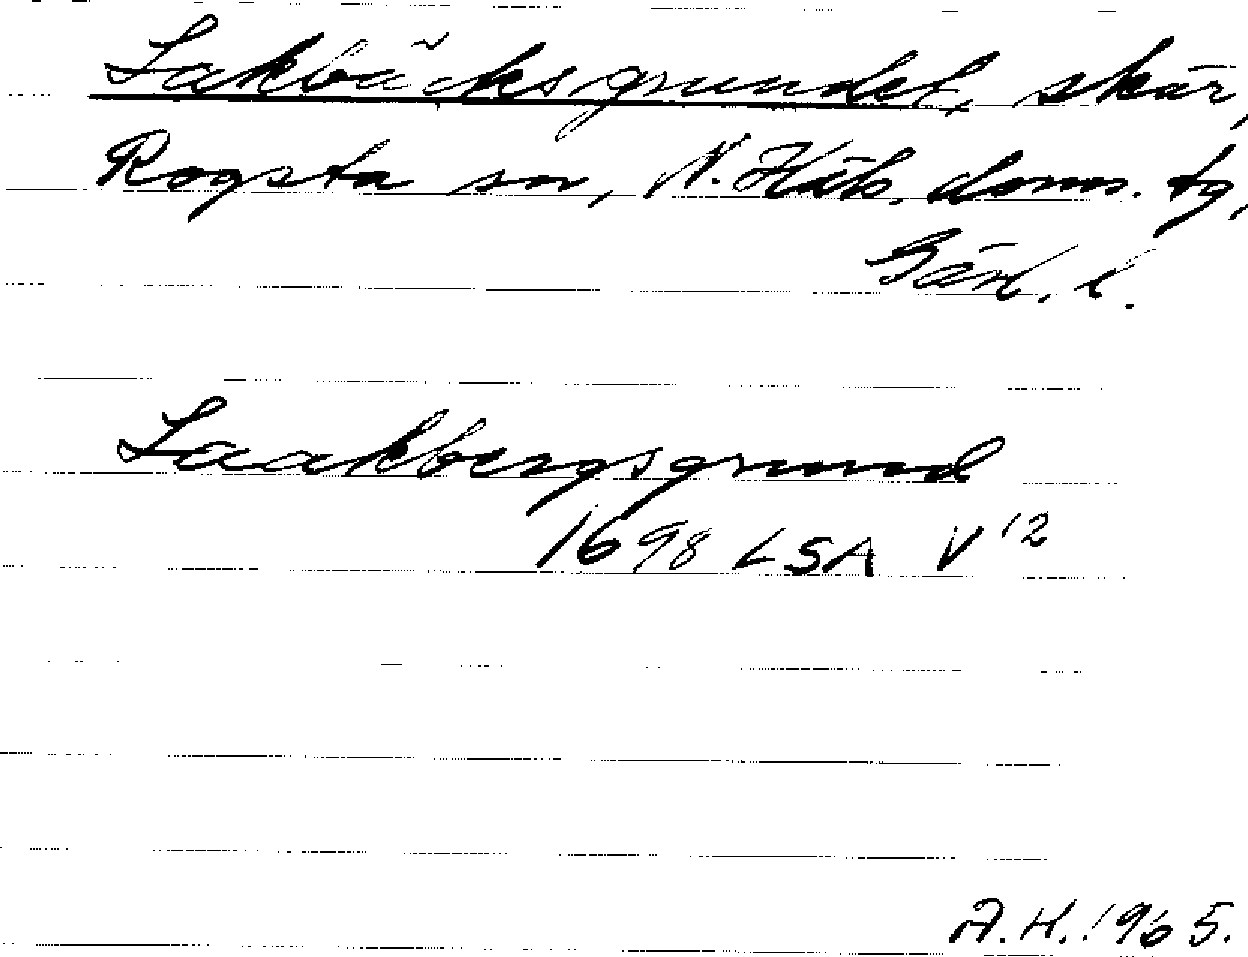 Lakbäcksgrundet, skär,
Rogsta sn, N. Häls. doms. tg,
Gävl. l.
Laakbergsgrund
1698 LSA V 12
A.H. 1965.